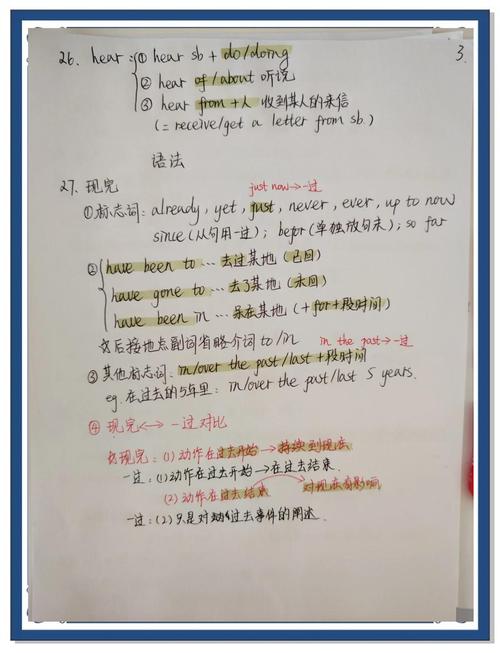 3.
26. hear: ① hear sb + do/doing
② hear of/about 听说
③ hear from +人 收到某人的来信
(= receive/get a letter from sb.)
语法
27. 现完
just now→一过
①标志词: already, yet, just, never, ever, up to now
since (从句用一过); befor (单独放句末); so far
② have been to … 去过某地 (已回)
have gone to … 去了某地 (未回)
have been in … 呆在某地 (+for+段时间)
后接地点副词省略介词 to/in
in the past→一过
③ 其他标志词: in/over the past/last +段时间
eg. 在过去的5年里: in/over the past/last 5 years.
④ 现完<—> 一过对比
现完: (1) 动作在过去开始→持续到现在
一过: (1) 动作在过去开始→在过去结束.
(2) 动作在过去结束 对现在有影响
一过: (2) 只是对过去事件的阐述.